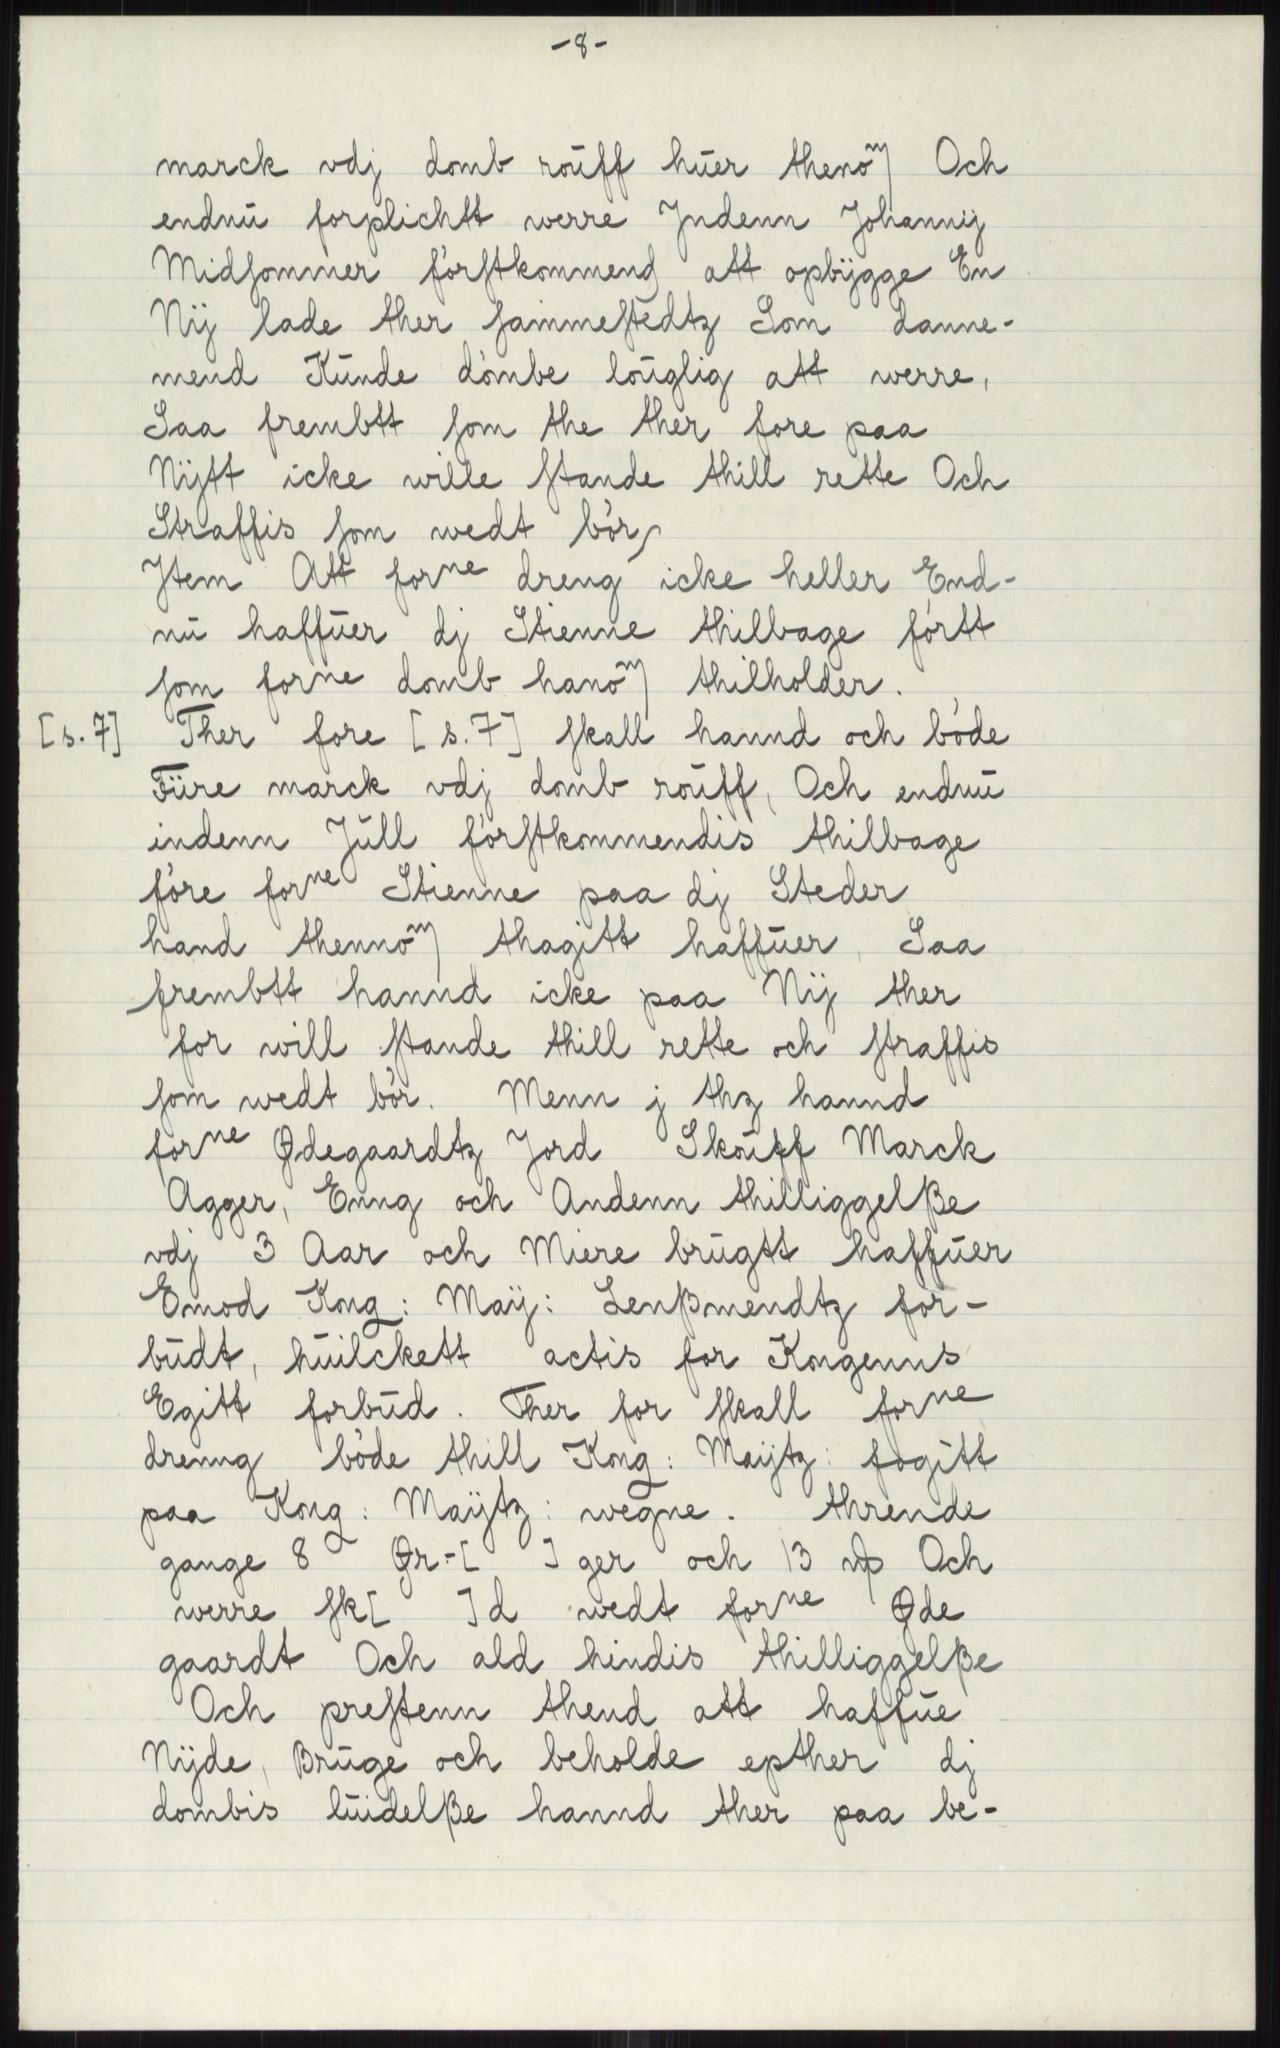 -8-
marck vdj domb roūff hūer thenom Och
endnū forplichtt werre Jndenn Johannij
Midsommer förstkommend att opbÿgge En
Nÿ lade ther sammestedtz Som danne-
mend Kūnde dömbe loūglig att werre,
Saa frembtt som the ther fore paa
Nÿtt icke wille stande thill rette Och
Straffis som wedt bör,
Jtem Att forne dreng icke heller End-
nū haffūer dj Stienne thilbage förtt
som forne domb hanom thilholder.
[s. 7] Ther fore [s. 7] skall hannd och böde
Füre marck vdj domb roūff, Och endnū
indenn Jūll förstkommendis thilbage
före forne Stienne paa dj Steder
hand thennom thagitt haffūer, Saa
frembtt hannd icke paa Nÿ ther
for will stande thill rette och straffis
som wedt bör. Menn j thz hannd
forne Ødegaardtz Jord Skoūff Marck
Agger, Enng och Andenn thilliggelße
vdj 3 Aar och Miere brūgtt haffūer
Emod Kong: Maÿ: Lenßmendtz for-
būdt, hūilckett actis for Kongenns
Egitt forbūd. Ther for skall forne
drenng böde thill Kong: Maÿtz: fogitt
paa Kong: Maÿtz: wegne. thrende
gange 8 Ør-[ ] ger och 13 Och
werre sk[ ]d wedt forne Øde
gaardt Och ald hindis thilliggelße
Och prestenn thend att haffūe
Nÿde, Brūge och beholde epther dj
dombis lūidelße hannd ther paa be-